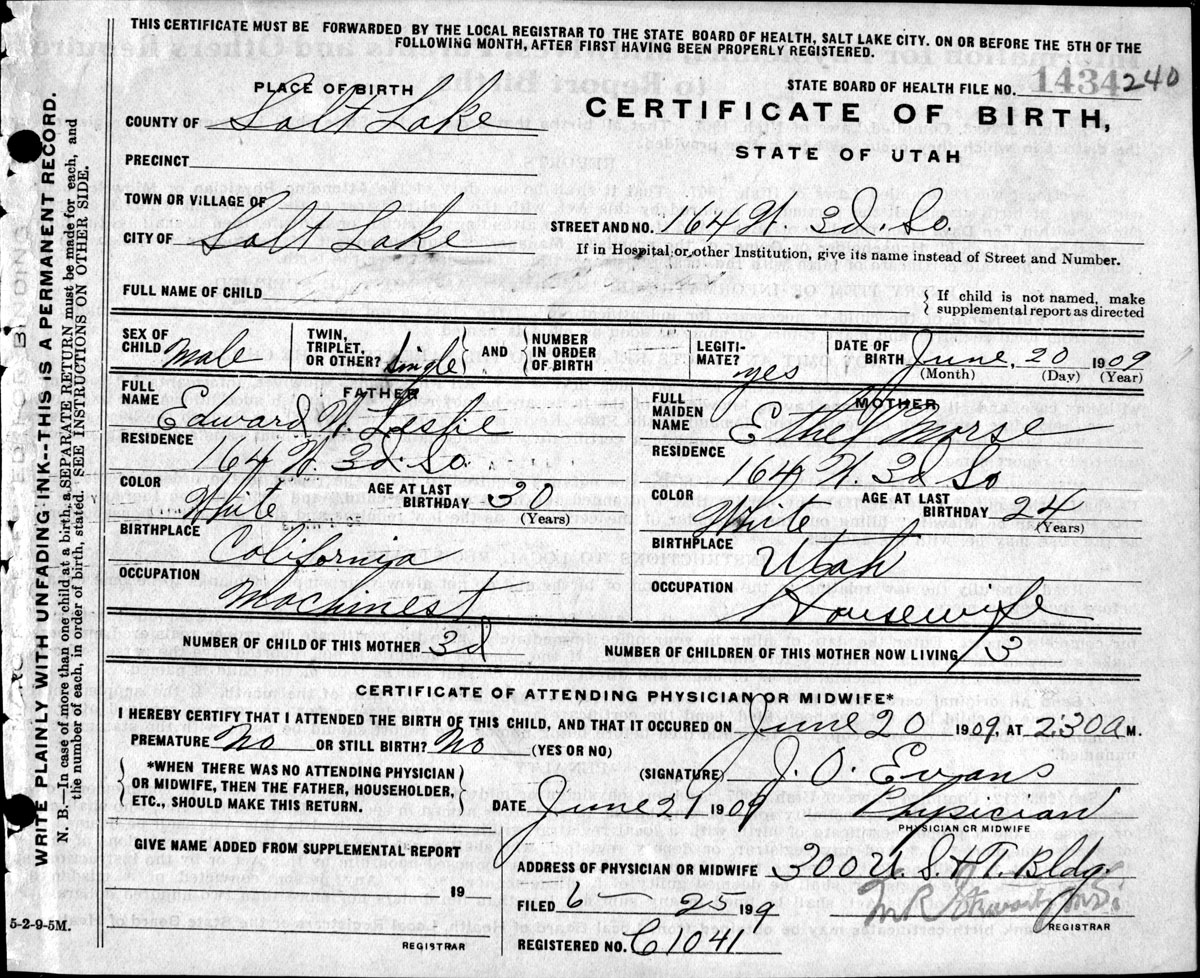 THIS CERTIFICATE MUST BE FORWARDED BY THE LOCAL REGISTRAR TO THE STATE BOARD OF HEALTH, SALT LAKE CITY. ON OR BEFORE THE 5TH OF THE
FOLLOWING MONTH, AFTER FIRST HAVING BEEN PROPERLY REGISTERED.
PLACE OF BIRTH
STATE BOARD OF HEALTH FILE NO. 1434 240
COUNTY OF Salt Lake
CERTIFICATE OF BIRTH,
STATE OF UTAH
PRECINCT
TOWN OR VILLAGE OF
CITY OF Salt Lake
STREET AND NO. 164 W 3d So.
If in Hospital or other Institution, give its name instead of Street and Number.
FULL NAME OF CHILD
If child is not named, make
supplemental report as directed
SEX OF CHILD Male
TWIN, TRIPLET, OR OTHER? single
AND
NUMBER IN ORDER OF BIRTH
LEGITIMATE? yes
DATE OF BIRTH June, 20 1909
(Month) (Day) (Year)
FATHER
FULL NAME Edward W. Leslie
RESIDENCE 164 W. 3d. So.
COLOR White
AGE AT LAST BIRTHDAY 30
(Years)
BIRTHPLACE California
OCCUPATION Machinest
MOTHER
FULL MAIDEN NAME Ethel Morse
RESIDENCE 164 W. 3d So
COLOR White
AGE AT LAST BIRTHDAY 24
(Years)
BIRTHPLACE Utah
OCCUPATION Housewife
NUMBER OF CHILD OF THIS MOTHER 3d
NUMBER OF CHILDREN OF THIS MOTHER NOW LIVING 3
CERTIFICATE OF ATTENDING PHYSICIAN OR MIDWIFE*
I HEREBY CERTIFY THAT I ATTENDED THE BIRTH OF THIS CHILD, AND THAT IT OCCURED ON June 20 1909, AT 2:30 a M.
PREMATURE No OR STILL BIRTH? No (YES OR NO)
*WHEN THERE WAS NO ATTENDING PHYSICIAN
OR MIDWIFE, THEN THE FATHER, HOUSEHOLDER,
ETC., SHOULD MAKE THIS RETURN.
(SIGNATURE) J. O. Evans
DATE June 21 1909
Physician
PHYSICIAN OR MIDWIFE
GIVE NAME ADDED FROM SUPPLEMENTAL REPORT
19
REGISTRAR
ADDRESS OF PHYSICIAN OR MIDWIFE 300 U. S. & T. Bldg.
FILED 6 25 199
REGISTRAR
REGISTERED NO. C1041
5-2-9-5M.
WRITE PLAINLY WITH UNFADING INK--THIS IS A PERMANENT RECORD.
N. B.—In case of more than one child at a birth, a SEPARATE RETURN must be made for each, and
the number of each, in order of birth, stated. SEE INSTRUCTIONS ON OTHER SIDE.